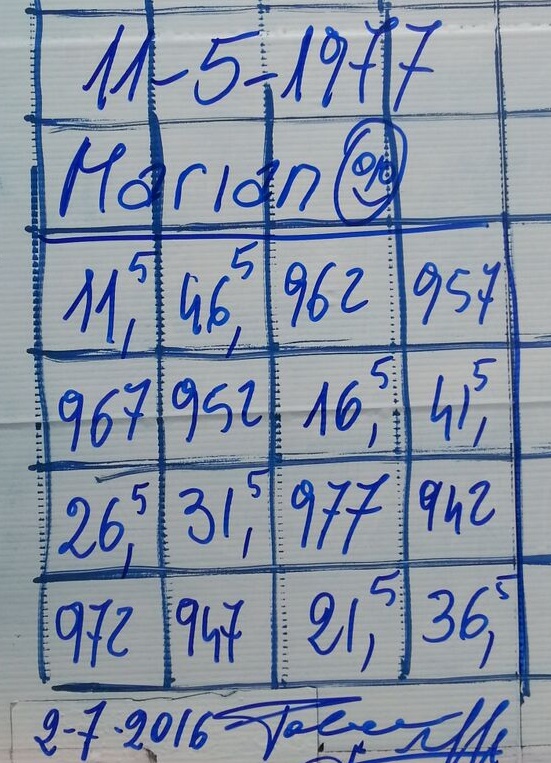 11-5-1977
Marian
11,5 46,5 962 957
967 952 16,5 41,5
26,5 31,5 977 942
972 947 21,5 36,5
2-7-2016